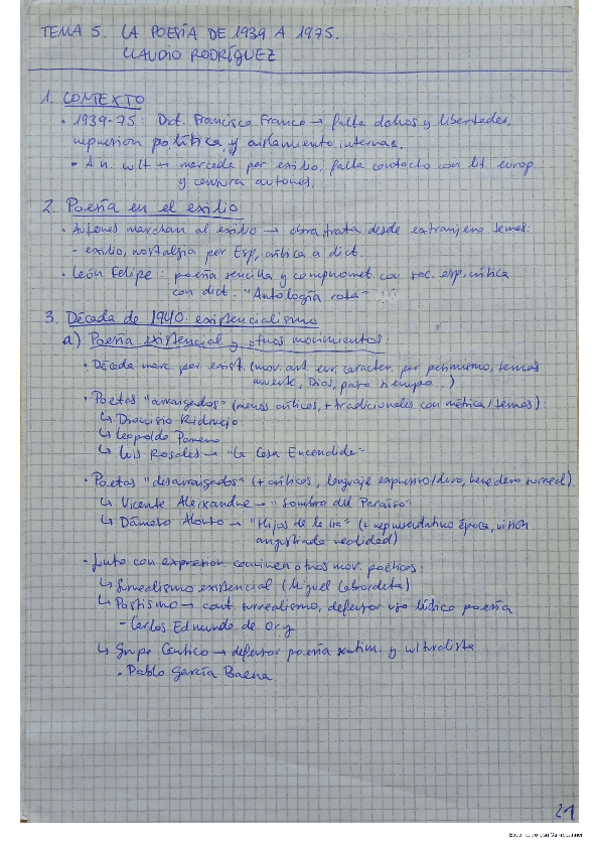 TEMA 5. LA POESÍA DE 1939 A 1975.
CLAUDIO RODRÍGUEZ
1. CONTEXTO
• 1939-75: Dict. Francisco Franco → falta dchos y libertades,
represión política y aislamiento internac.
- An. cult → marcada por exilio, falta contacto con lit. europ
y censura autores.
2. Poesía en el exilio
• Autores marchan al exilio → obra trata desde extranjero temas:
- exilio, nostalgia por Esp, crítica a dict.
• León Felipe: poesía sencilla y compromet. con soc. esp, crítica
con dict. "Antología rota"
3. Década de 1940: existencialismo
a) Poesía existencial y otros movimientos
• Década marc. por exist. (mov. art. eur. caracter. por pesimismo, temas
muerte, Dios, paso tiempo...)
• Poetas "arraigados" (menos críticos, + tradicionales con métrica/temas):
↳ Dionisio Ridruejo
↳ Leopoldo Panero
↳ Luis Rosales → "La Casa Encendida"
• Poetas "desarraigados" (+ críticos, lenguaje expresivo/duro, heredero surreal.)
↳ Vicente Aleixandre → "Sombra del Paraíso"
↳ Dámaso Alonso → "Hijos de la ira" (+ representativo época, visión
angustiada realidad)
• Junto con expresion. conviven otros mov. poéticos:
↳ Surrealismo existencial (Miguel Labordeta)
↳ Postismo → cont. surrealismo, defensor uso lúdico poesía
- Carlos Edmundo de Ory
↳ Grupo Cántico → defensor poesía sentim. y culturalista
• Pablo García Baena
21